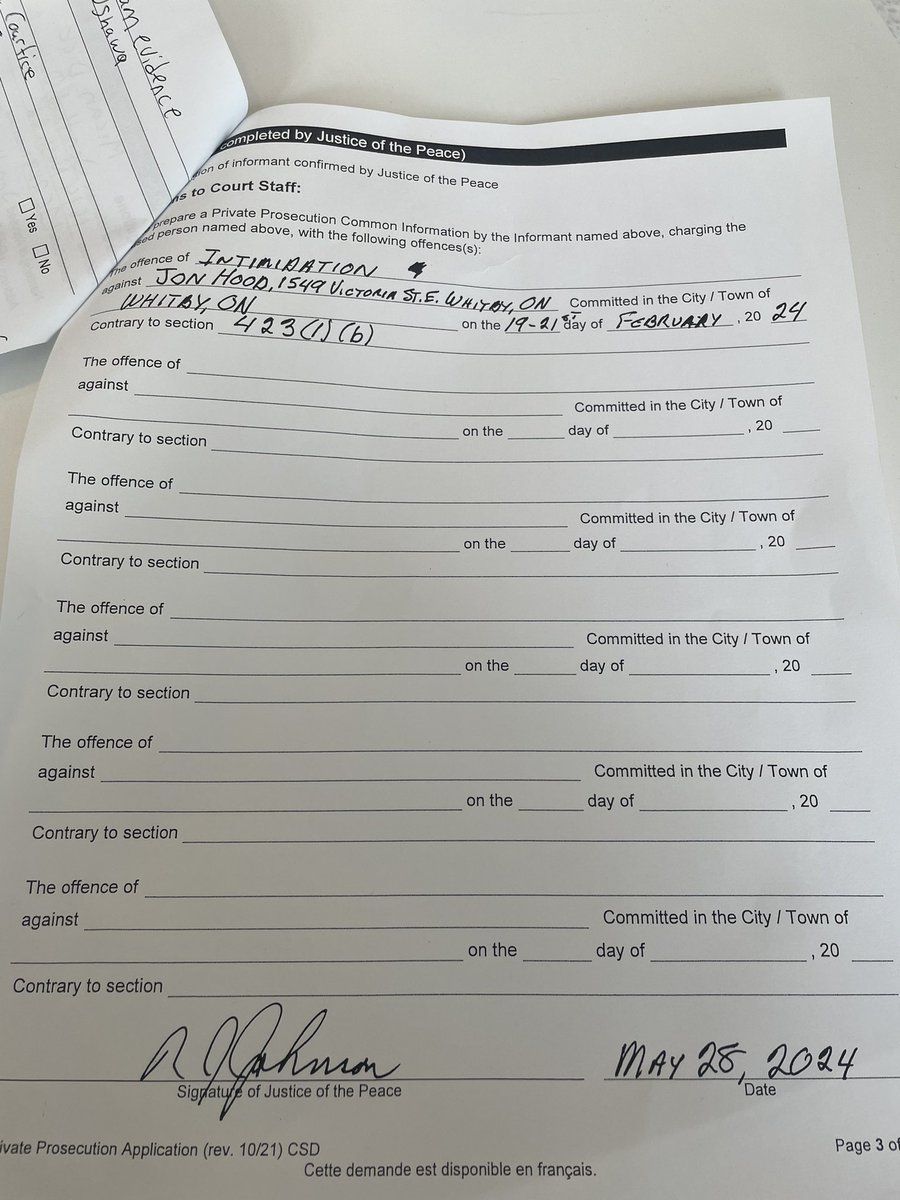 am evidence
Oshawa
Courtice
Yes No
completed by Justice of the Peace)
of informant confirmed by Justice of the Peace
to Court Staff:
prepare a Private Prosecution Common Information by the Informant named above, charging the
person named above, with the following offences(s):
The offence of INTIMIDATION
against JON HOOD, 1549 VICTORIA ST. E. WHITBY, ON Committed in the City / Town of
WHITBY, ON on the 19-21st day of FEBRUARY, 20 24
Contrary to section 423(1)(b)
The offence of
against Committed in the City / Town of
on the day of , 20
Contrary to section
The offence of
against Committed in the City / Town of
on the day of , 20
Contrary to section
The offence of
against Committed in the City / Town of
on the day of , 20
Contrary to section
The offence of
against Committed in the City / Town of
on the day of , 20
Contrary to section
The offence of
against Committed in the City / Town of
on the day of , 20
Contrary to section
Johnson MAY 28, 2024
Signature of Justice of the Peace Date
Prosecution Application (rev. 10/21) CSD Page 3 of
Cette demande est disponible en français.